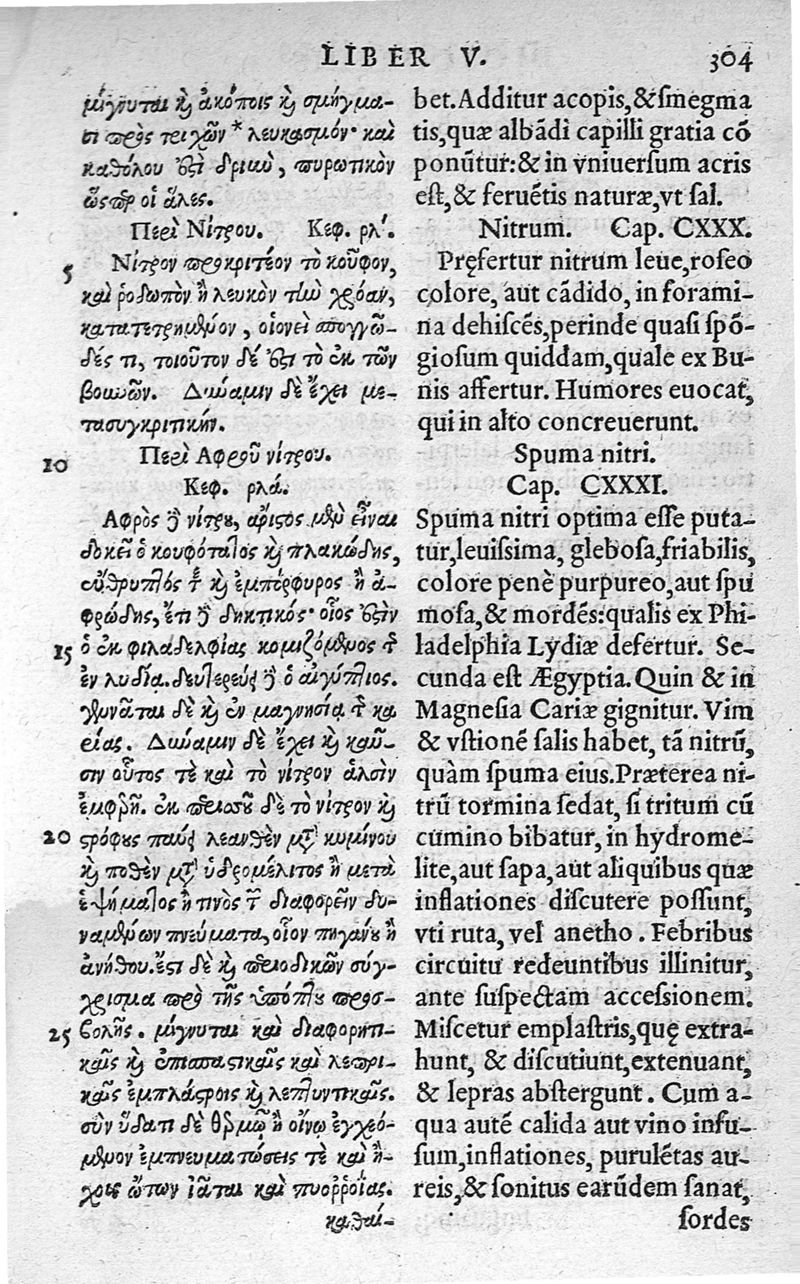 LIBER V. 304
μίγνυται καὶ ἀκόποις καὶ σμήγμα-
σι πρὸς τειχῶν* λευκασμόν· καὶ
καθόλου ἐστὶ δριμὺ, πυρωτικὸν
ὥσπερ οἱ ἅλες.
Περὶ Νίτρου. Κεφ. ρλ΄.
5 Νίτρον προκριτέον τὸ κοῦφον,
καὶ ῥοδωπὸν ἢ λευκὸν τὴν χρόαν,
κατατετρημένον, οἱονεὶ σπογγῶ-
δές τι, τοιοῦτον δέ ἐστι τὸ ἐκ τῶν
βουνῶν. Δύναμιν δὲ ἔχει με-
τασυγκριτικήν.
10 Περὶ Αφροῦ νίτρου.
Κεφ. ρλά.
Αφρὸς δὲ νίτρου, ἄριστος μὲν εἶναι
δοκεῖ ὁ κουφότατος καὶ πλακώδης,
εὔθρυπτός τε καὶ ἐμπόρφυρος ἢ ἀ-
φρώδης, ἔτι δὲ δηκτικός· οἷος ἐστὶν
15 ὁ ἐκ φιλαδελφίας κομιζόμενος τῆς
ἐν λυδία. δευτερεύει δὲ ὁ αἰγύπτιος.
γεννᾶται δὲ καὶ ἐν μαγνησίᾳ τῆς κα
ρίας. Δύναμιν δὲ ἔχει καὶ καῦ-
σιν οὗτος τὲ καὶ τὸ νίτρον ἁλσὶν
ἐμφερῆ. ἐκ περισσοῦ δὲ τὸ νίτρον καὶ
20 στρόφους παύει λεανθὲν μετὰ κυμίνου
καὶ ποθὲν μετὰ ὑδρομέλιτος ἢ μετὰ
ἑψήματος ἤ τινος τῶν διαφορεῖν δυ-
ναμένων πνεύματα, οἷον πηγάνου ἢ
ἀνήθου. ἔστι δὲ καὶ περιοδικῶν σύγ-
χρισμα πρὸ τῆς ὑπόπτου προσ-
25 βολῆς. μίγνυται καὶ διαφορητι-
καῖς καὶ ἐπισπαστικαῖς καὶ λεπρι-
καῖς ἐμπλάστροις καὶ λεπτυντικαῖς.
σὺν ὕδατι δὲ θερμῷ ἢ οἴνῳ ἐγχεό-
μενον ἐμπνευματώσεις τὲ καὶ ἤ-
χους ὤτων ἰᾶται καὶ πυοῤῥοίας.
καθαί-
bet. Additur acopis, & smegma
tis, quæ albãdi capilli gratia cõ
ponũtur: & in vniuersum acris
est, & feruẽtis naturæ, vt sal.
Nitrum. Cap. CXXX.
Pręfertur nitrum leue, roseo
colore, aut cãdido, in forami-
na dehiscẽs, perinde quasi spõ-
giosum quiddam, quale ex Bu-
nis affertur. Humores euocat,
qui in alto concreuerunt.
Spuma nitri.
Cap. CXXXI.
Spuma nitri optima esse puta-
tur, leuissima, glebosa, friabilis,
colore penè purpureo, aut spu
mosa, & mordẽs: qualis ex Phi-
ladelphia Lydiæ defertur. Se-
cunda est Ægyptia. Quin & in
Magnesia Cariæ gignitur. Vim
& vstionẽ salis habet, tã nitrũ,
quàm spuma eius. Præterea ni-
trũ tormina sedat, si tritum cũ
cumino bibatur, in hydrome-
lite, aut sapa, aut aliquibus quæ
inflationes discutere possunt,
vti ruta, vel anetho. Febribus
circuitu redeuntibus illinitur,
ante suspectam accessionem.
Miscetur emplastris, quę extra-
hunt, & discutiunt, extenuant,
& lepras abstergunt. Cum a-
qua autẽ calida aut vino infu-
sum, inflationes, purulẽtas au-
reis, & sonitus earũdem sanat,
sordes